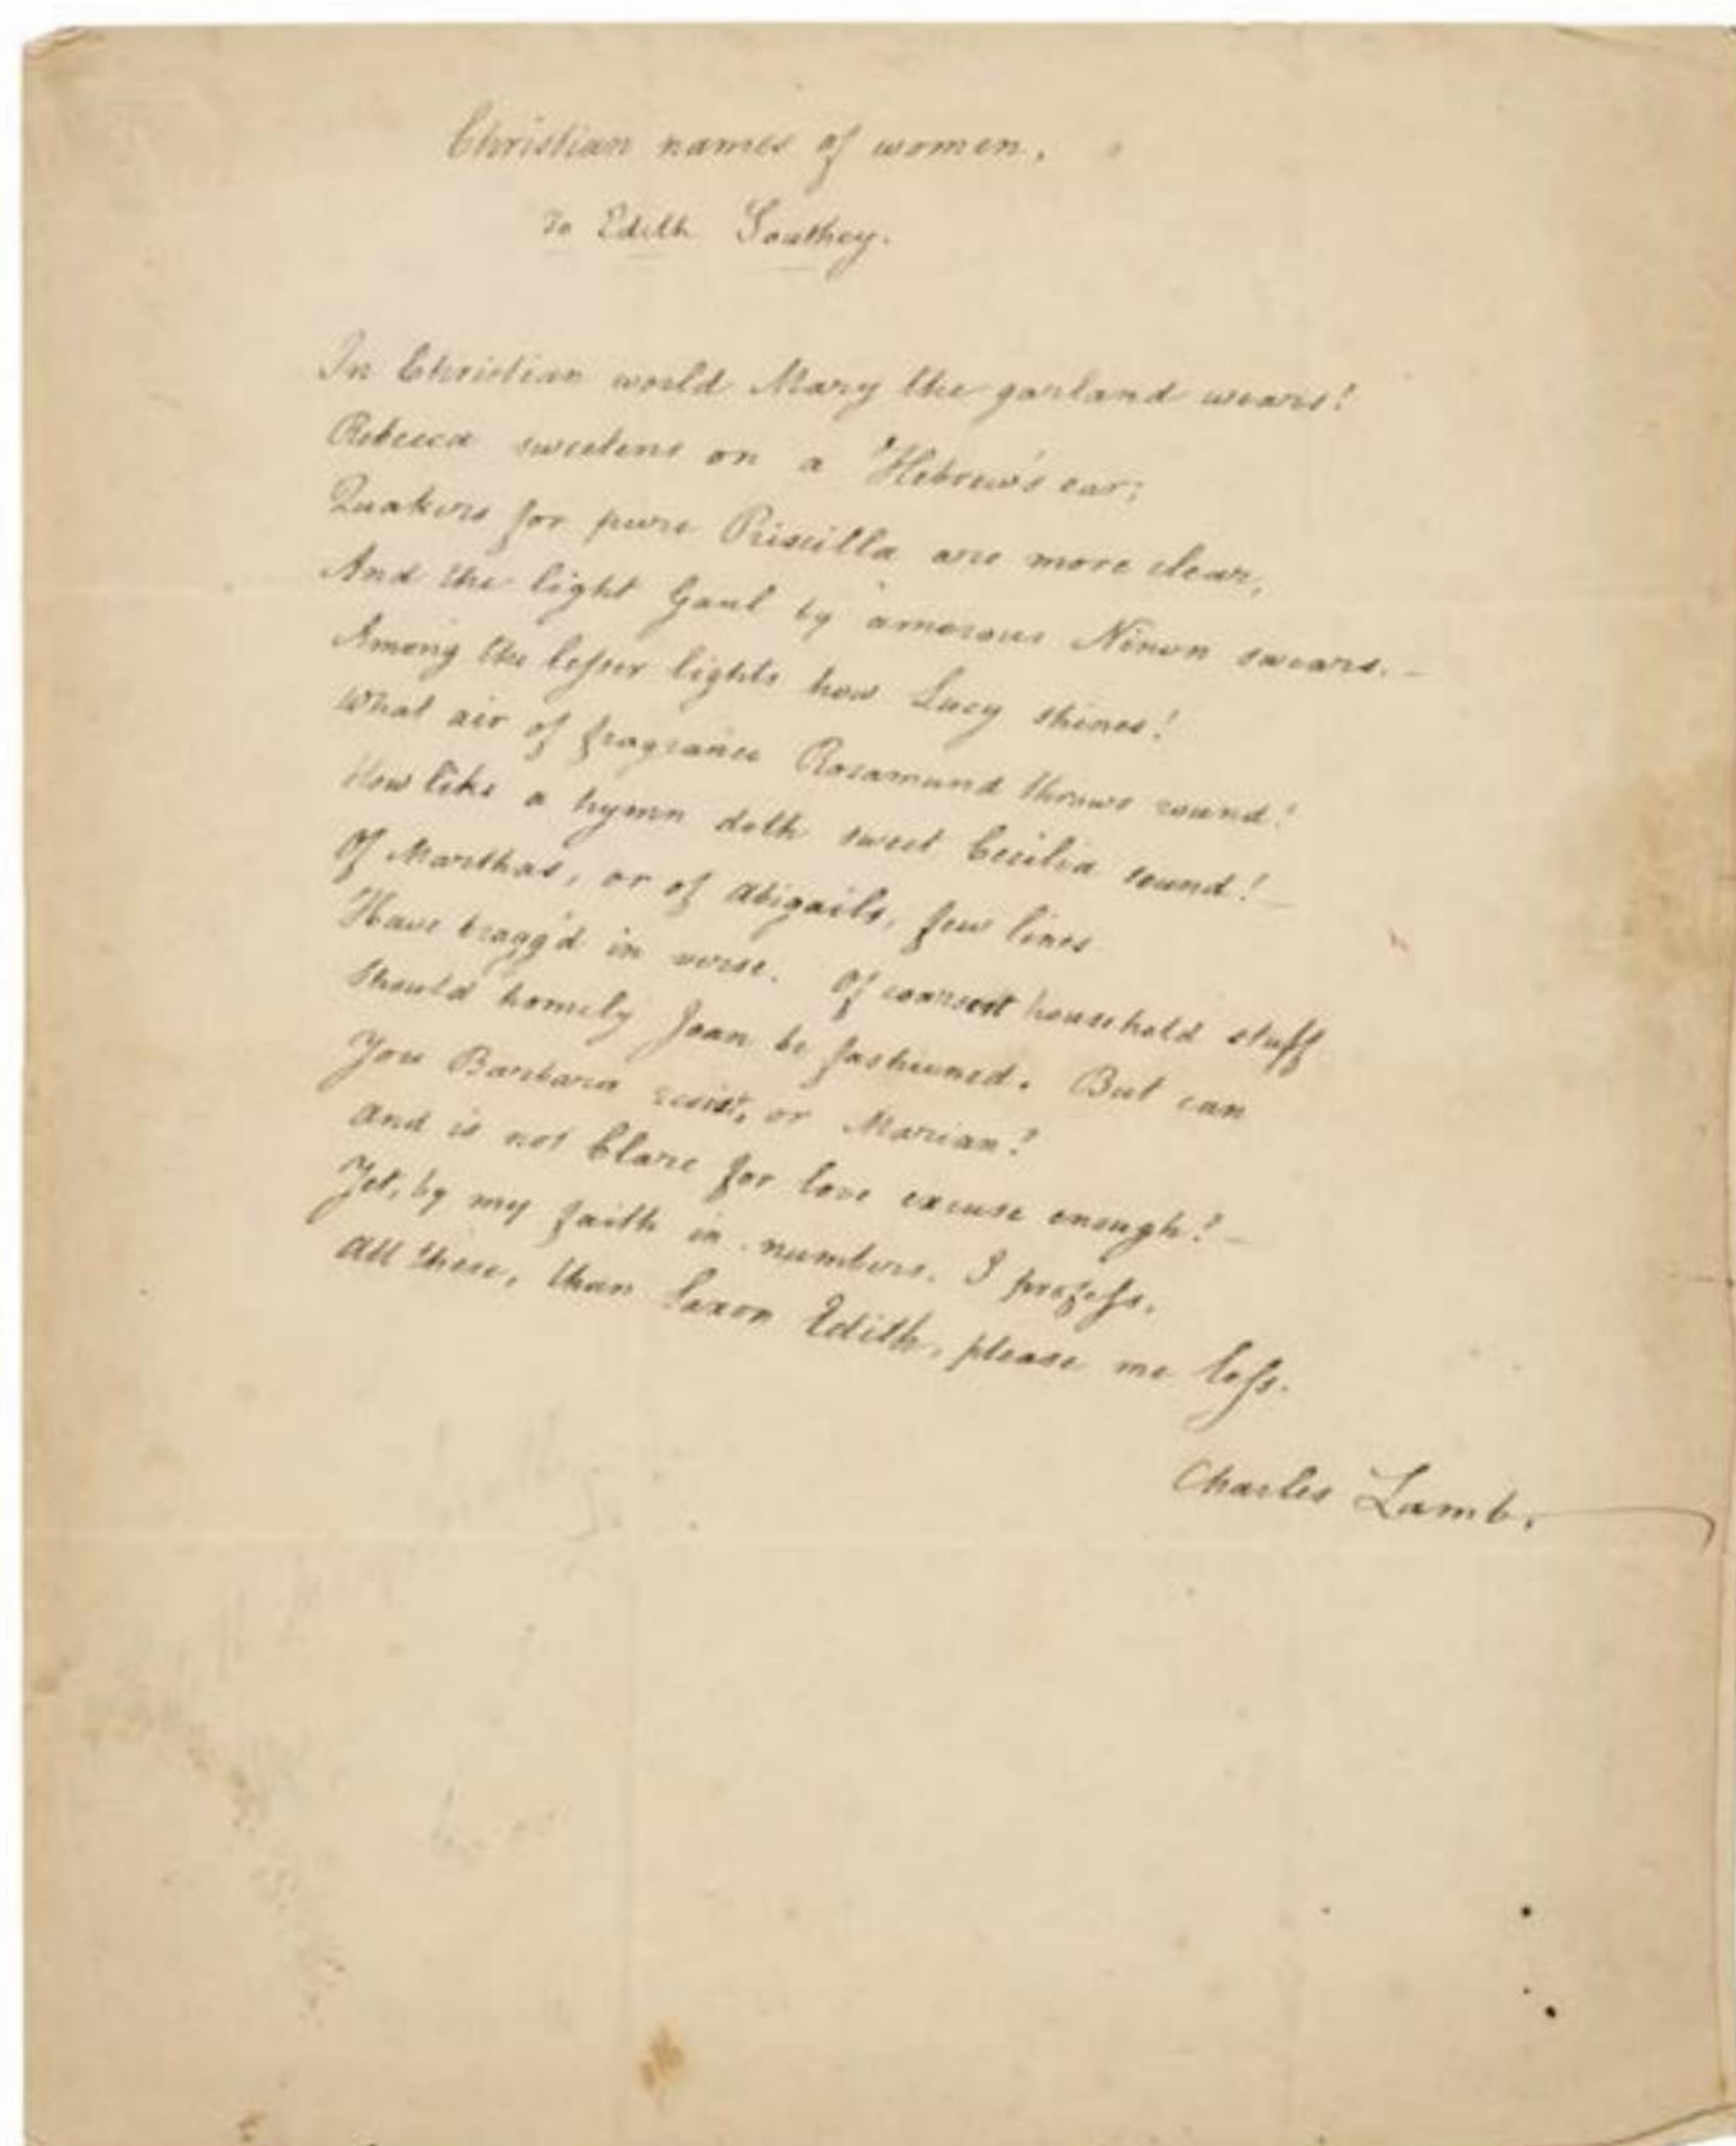 Christian names of women.
To Edith Southey.
In Christian world Mary the garland wears!
Rebecca sweetens on a Hebrew's ear;
Quakers for pure Priscilla are more clear,
And the light Gaul by amorous Ninon swears.—
Among the lesser lights how Lucy shines!
What air of fragrance Rosamund throws round!
How like a hymn doth sweet Cecilia sound!—
Of Marthas, or of Abigails, few lines
Have bragg'd in verse. Of coarsest household stuff
Should homely Joan be fashioned. But can
You Barbara resist, or Marian?
And is not Clare for love excuse enough?—
Yet, by my faith in numbers, I profess,
All these, than Saxon Edith, please me less.
Charles Lamb.